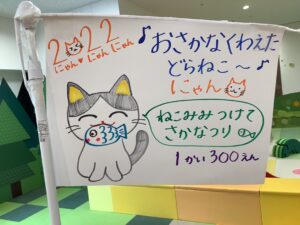 2022
にゃん♥にゃんにゃん
♪おさかなくわえた
どらねこ〜♪
にゃん
ねこみみつけて
さかなつり
1かい300えん